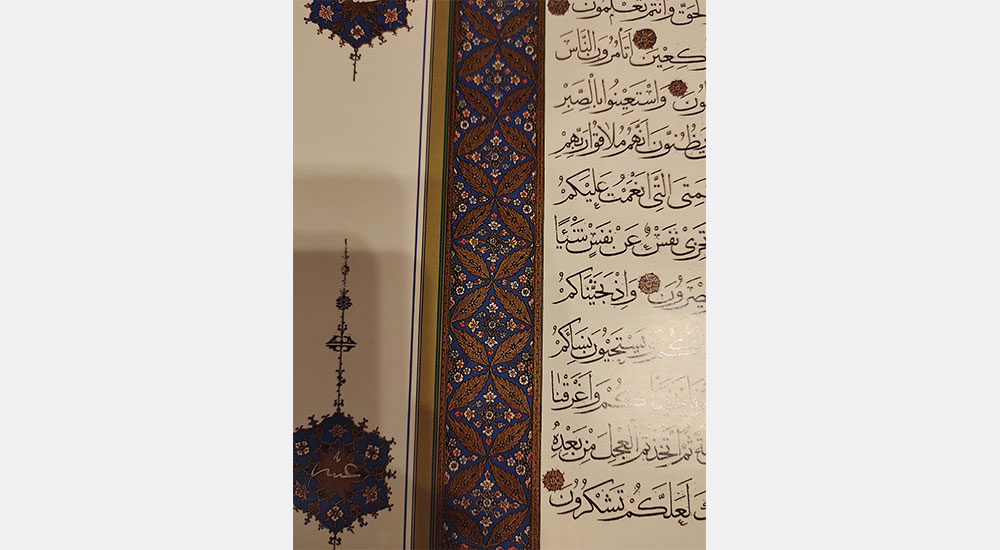 وَأَنْتُمْ تَعْلَمُونَ
أَتَأْمُرُونَ النَّاسَ
وَاسْتَعِينُوا بِالصَّبْرِ
يَظُنُّونَ أَنَّهُمْ مُلَاقُوا رَبِّهِمْ
الَّتِي أَنْعَمْتُ عَلَيْكُمْ
نَفْسٌ عَنْ نَفْسٍ شَيْئًا
وَإِذْ نَجَّيْنَاكُمْ
وَيَسْتَحْيُونَ نِسَاءَكُمْ
وَأَغْرَقْنَا
ثُمَّ اتَّخَذْتُمُ الْعِجْلَ مِنْ بَعْدِهِ
لَعَلَّكُمْ تَشْكُرُونَ
عشر